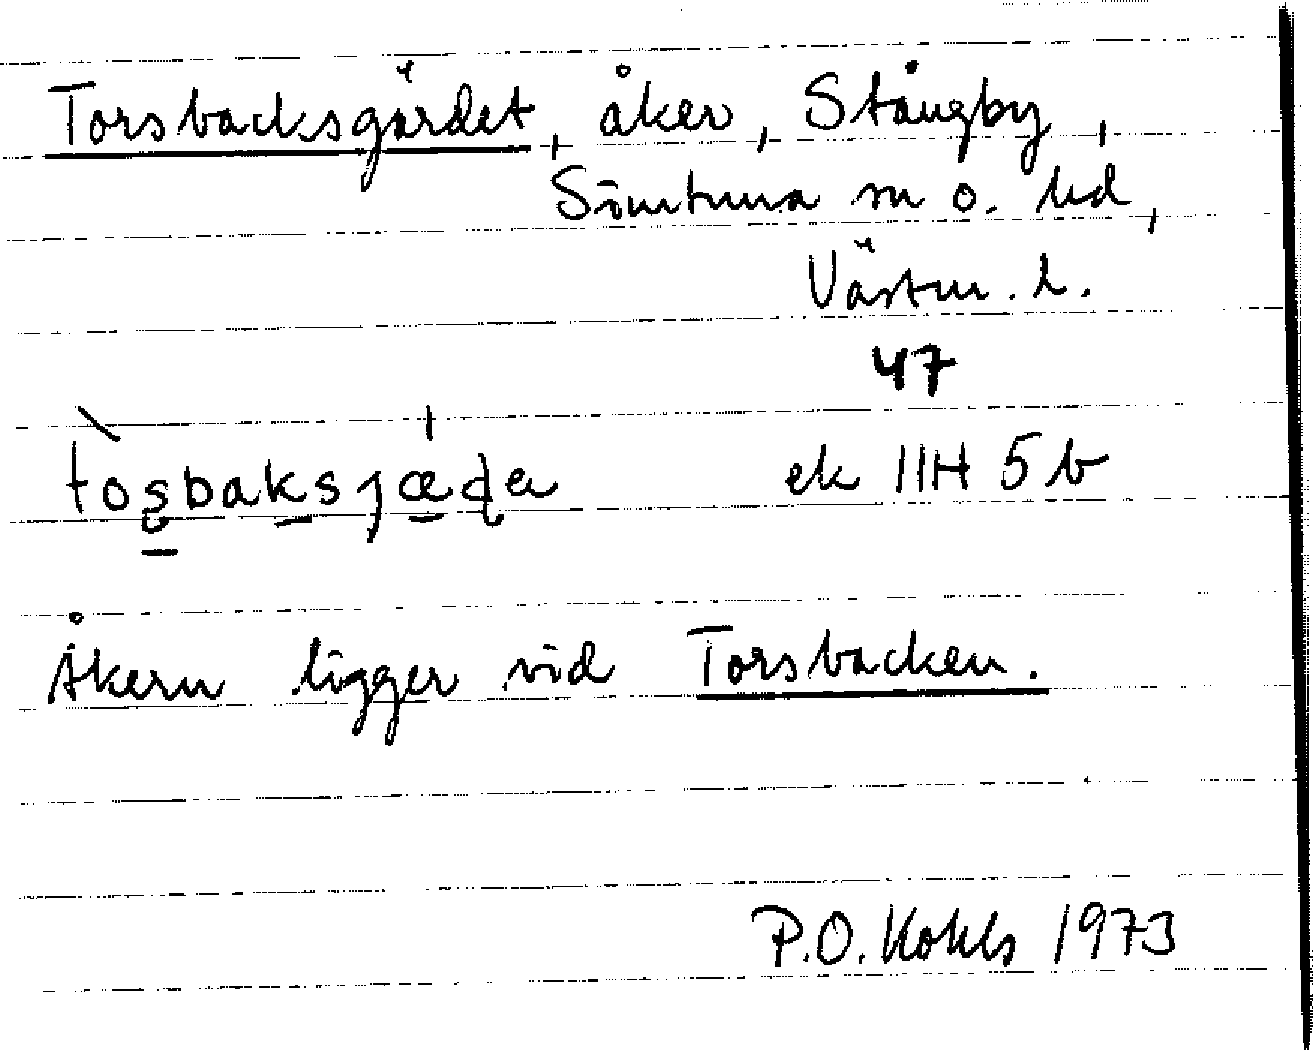 Torsbacksgärdet, åker, Stångby,
Simtuna sn o. hd,
Västm. l.
47
ek 11H 5b
Åkern ligger vid Torsbacken.
P.O. Kohls 1973